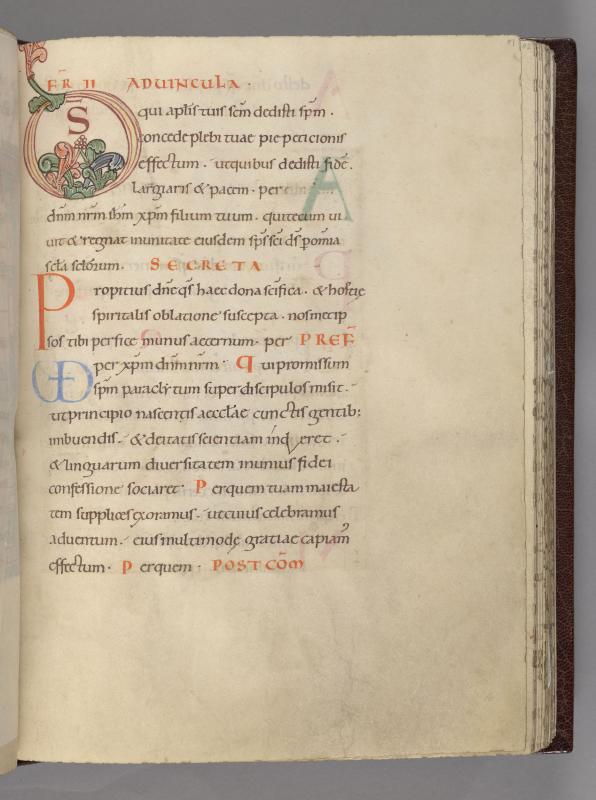 FR̄ II AD UINCULA .
D̄S qui apl̄is tuis sc̄m dedisti sp̄m .
concede plebi tuae piae peticionis
effectum . ut quibus dedisti fidē .
largiaris & pacem . per
dn̄m nr̄m ih̄m xp̄m filium tuum . qui tecum ui
uit & regnat in unitate eiusdem sp̄s sc̄i ds̄ p om̄ia
sc̄la sclōrum . SECRETA
Propitius dn̄e qs̄ haec dona sc̄ifica . & hostię
spiritalis oblatione suscepta . nosmetip
sos tibi perfice munus aeternum . per PREF̄
UD per xp̄m dn̄m nr̄m . Qui promissum
sp̄m paraclytum super discipulos misit .
ut principio nascentis aeccl̄ae cunctis gentib;
imbuendis . & deitatis scientiam inderet .
& linguarum diuersitatem in unius fidei
confessione sociaret . Per quem tuam maiesta
tem supplices exoramus . ut cuius celebramus
aduentum . eius multimodę gratiae capiam'
effectum . Per quem . POST COM̄